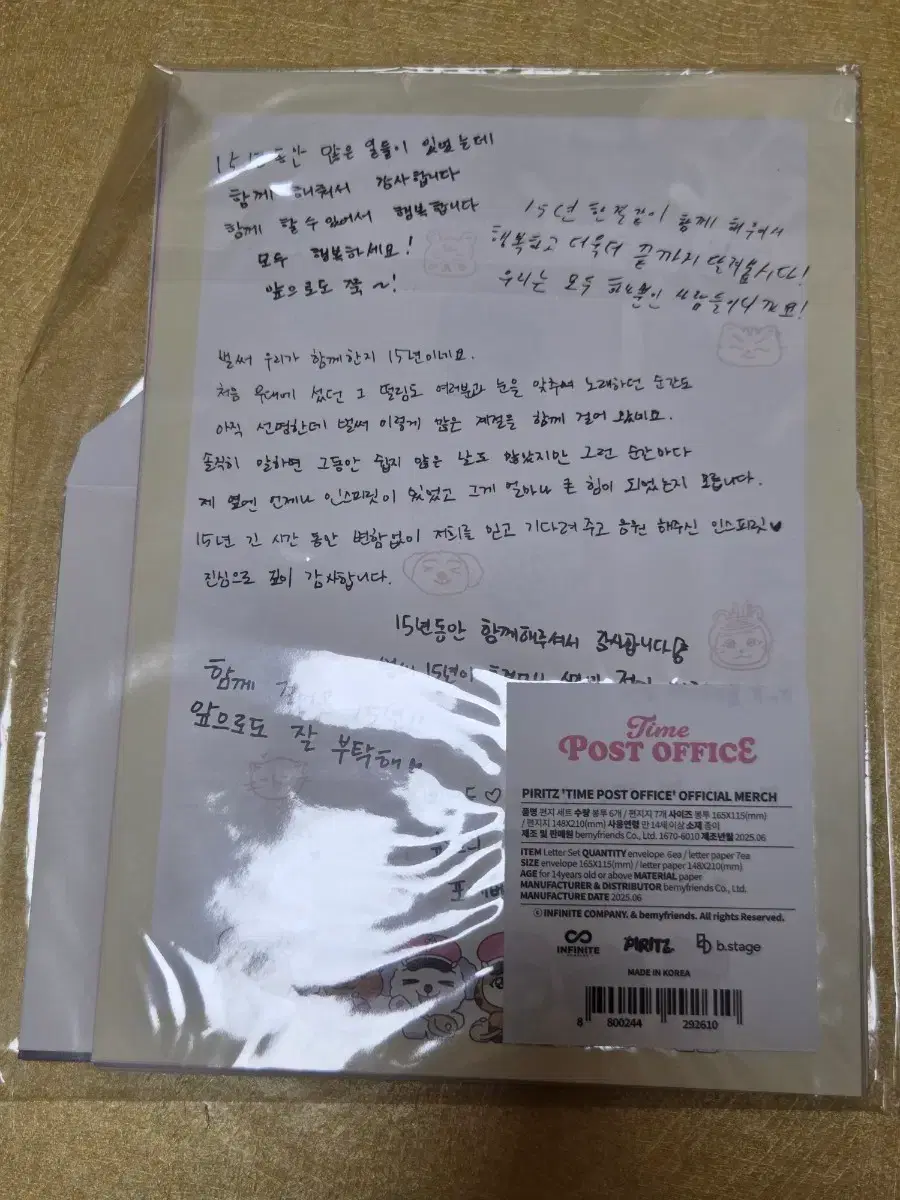 15년동안 많은 일들이 있었는데
함께 해줘서 감사합니다
함께 할 수 있어서 행복합니다
모두 행복하세요!
앞으로도 쭉~!
15년 한결같이 함께 해줘서
행복하고 더욱더 끝까지 달려봅시다!
우리는 모두 기쁜 사람들이니까요!
벌써 우리가 함께한지 15년이네요.
처음 무대에 섰던 그 떨림도 여러분과 눈을 맞추며 노래하던 순간도
아직 선명한데 벌써 이렇게 많은 계절을 함께 걸어 왔네요.
솔직히 말하면 그동안 쉽지 않은 날도 많았지만 그런 순간마다
제 옆엔 언제나 인스피릿이 있었고 그게 얼마나 큰 힘이 되었는지 모릅니다.
15년 긴 시간 동안 변함없이 저희를 믿고 기다려주고 응원 해주신 인스피릿♥
진심으로 깊이 감사합니다.
15년동안 함께해주셔서 감사합니다
15년이
함께
앞으로도 잘 부탁해~
Time
POST OFFICE
PIRITZ 'TIME POST OFFICE' OFFICIAL MERCH
품명 편지 세트 수량 봉투 6개 / 편지지 7개 사이즈 봉투 165X115(mm)
/ 편지지 148X210(mm) 사용연령 만 14세 이상 소재 종이
제조 및 판매원 bemyfriends Co., Ltd. 1670-6010 제조년월 2025.06
ITEM Letter Set QUANTITY envelope 6ea / letter paper 7ea
SIZE envelope 165X115(mm) / letter paper 148X210(mm)
AGE for 14years old or above MATERIAL paper
MANUFACTURER & DISTRIBUTOR bemyfriends Co., Ltd.
MANUFACTURE DATE 2025.06
ⓒ INFINITE COMPANY. & bemyfriends. All rights Reserved.
INFINITE COMPANY PIRITZ b.stage
MADE IN KOREA
8 800244 292610